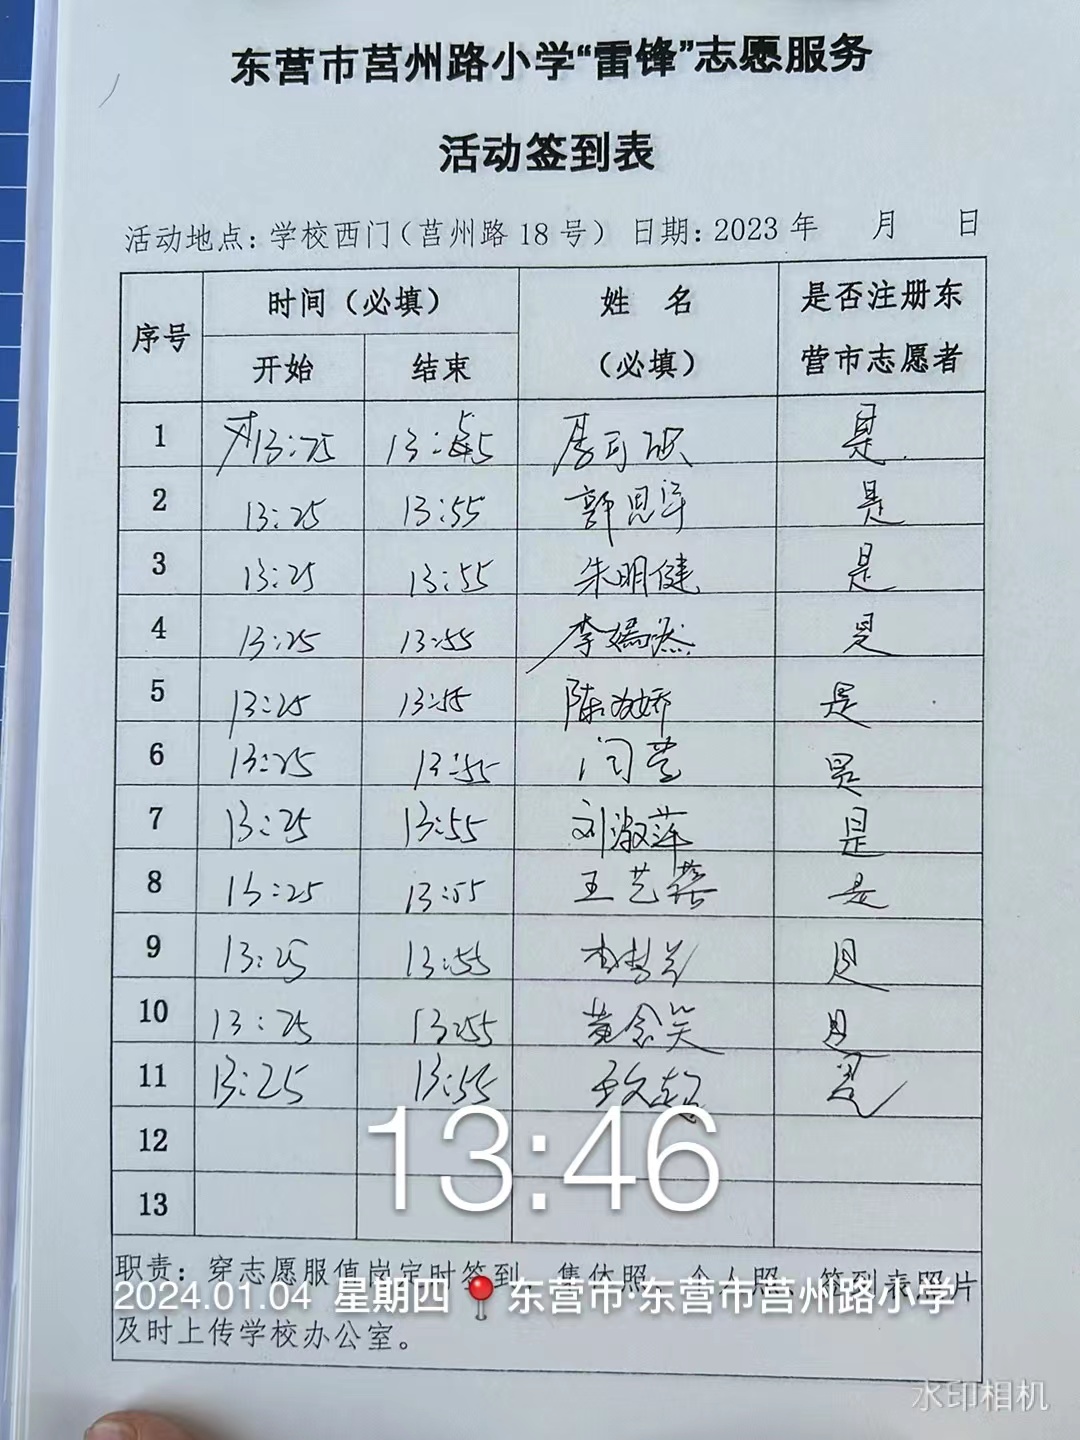 东营市莒州路小学“雷锋”志愿服务
活动签到表
活动地点：学校西门（莒州路 18 号） 日期：2023 年 月 日
序号 时间（必填） 姓 名 是否注册东
开始 结束 （必填） 营市志愿者
1 13:25 13:55 是
2 13:25 13:55 郭恩泽 是
3 13:25 13:55 朱明健 是
4 13:25 13:55 李嫣然 是
5 13:25 13:55 陈 娇 是
6 13:25 13:55 闫萱 是
7 13:25 13:55 刘淑萍 是
8 13:25 13:55 王艺蓉 是
9 13:25 13:55 是
10 13:25 13:55 黄念笑 是
11 13:25 13:55 是
12
13
13:46
职责：穿志愿服值岗定时签到、集体照、个人照、签到表照片
2024.01.04 星期四 东营市·东营市莒州路小学
及时上传学校办公室。
水印相机